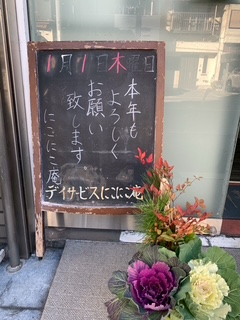 1月1日木曜日
本年も
よろしく
お願い
致します
にこにこ庵
デイサービスにこにこ庵